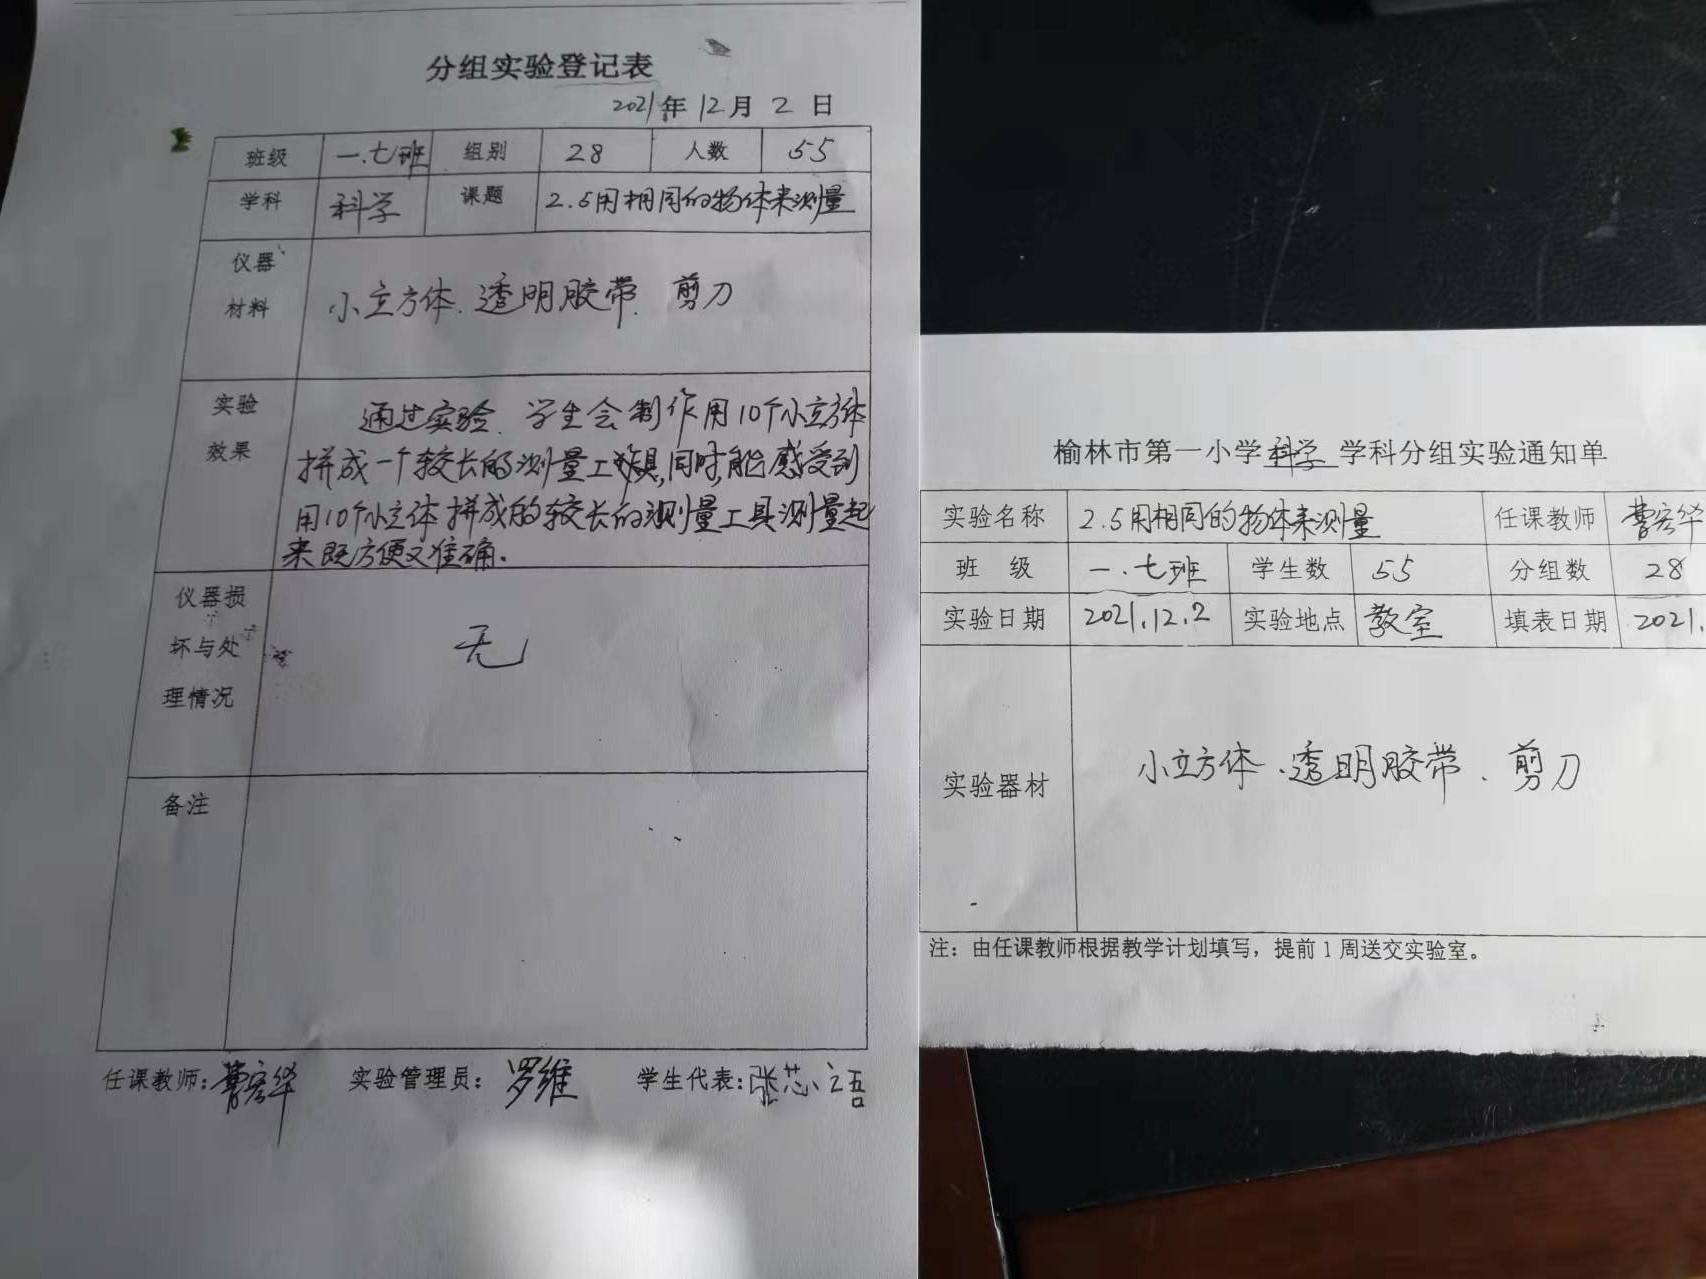 分组实验登记表
2021年12月2日
班级 一.七班 组别 28 人数 55
学科 科学 课题 2.5用相同的物体来测量
仪器
材料
小立方体.透明胶带.剪刀
实验
效果
通过实验.学生会制作用10个小立方体
拼成一个较长的测量工具,同时,能感受到
用10个小立体拼成的较长的测量工具测量起
来既方便又准确。
仪器损
坏与处
理情况
无
备注
任课教师:曹宏华 实验管理员:罗维 学生代表:张芯语
榆林市第一小学科学学科分组实验通知单
实验名称 2.5用相同的物体来测量 任课教师 曹宏华
班 级 一.七班 学生数 55 分组数 28
实验日期 2021.12.2 实验地点 教室 填表日期 2021.
实验器材 小立方体.透明胶带.剪刀
注:由任课教师根据教学计划填写,提前1周送交实验室。